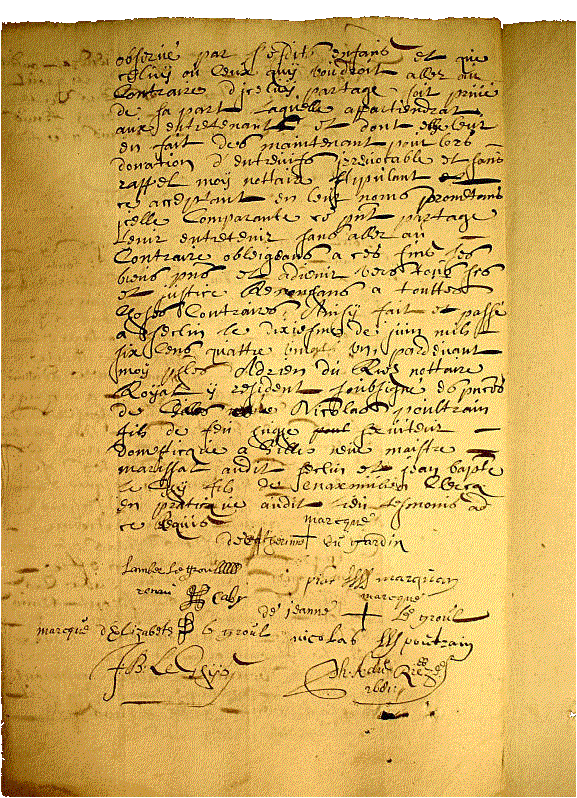 observé par lesdits enfans et que
celluy ou ceux quy voudroit aller au
Contraire d'iceluy partage soit privé
de sa part laquelle appartiendrat
aux entretenant et dont elle leur
en fait des maintenant pour lors
donation d'entrevifs irrevocable et sans
rappel moy nottaire stipulant et
ce acceptant en leur noms promettans
icelle Comparante ce pnt partage
tenir entretenir sans aller au
Contraire obligeans a ces fins ses
biens pns et advenir vers tous srs
et justice Renonçans a touttes
choses Contraires Ainsy fait et passé
a Seclin le dixiesme de juin mil
six cens quattre vingt un pardevant
moy Adrien du Riez nottaire
Royal y resident soubsigné es pnces
de Nicolas poultrain
fils de feu serviteur
domesticque a neuf maistre
audit Seclin et jean bapte
le fils de
en praticque audit lieu tesmoins ad
ce Requis
marcque
de Catherinne du Jardin
Lamber Le Groul
renau Caby
piat marquan
marcque
de jeanne le groul
marcque d'Elizabete le groul nicolas poutrain
J B Le
Adr. Riez